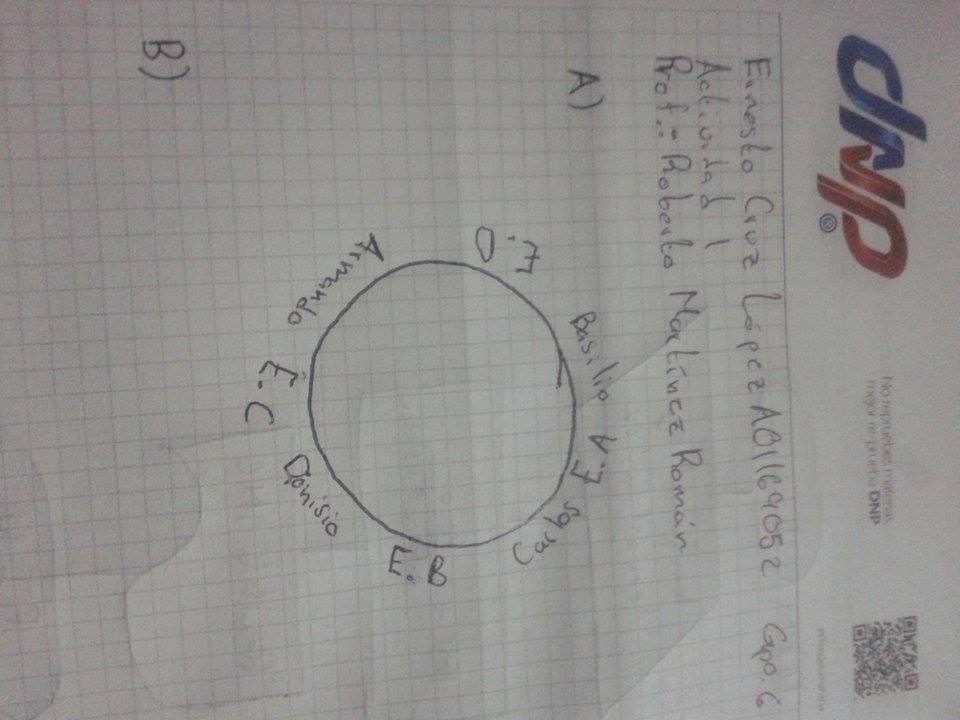 DNP®
No repruebes materias,
mejor re-prueba DNP
Ernesto Cruz López A01164052 Gpo. 6
Actividad 1
Prof.: Roberto Martínez Román
A)
E. D
Basilio
E. A
Carlos
E. B
Dionisio
E. C
Armando
B)